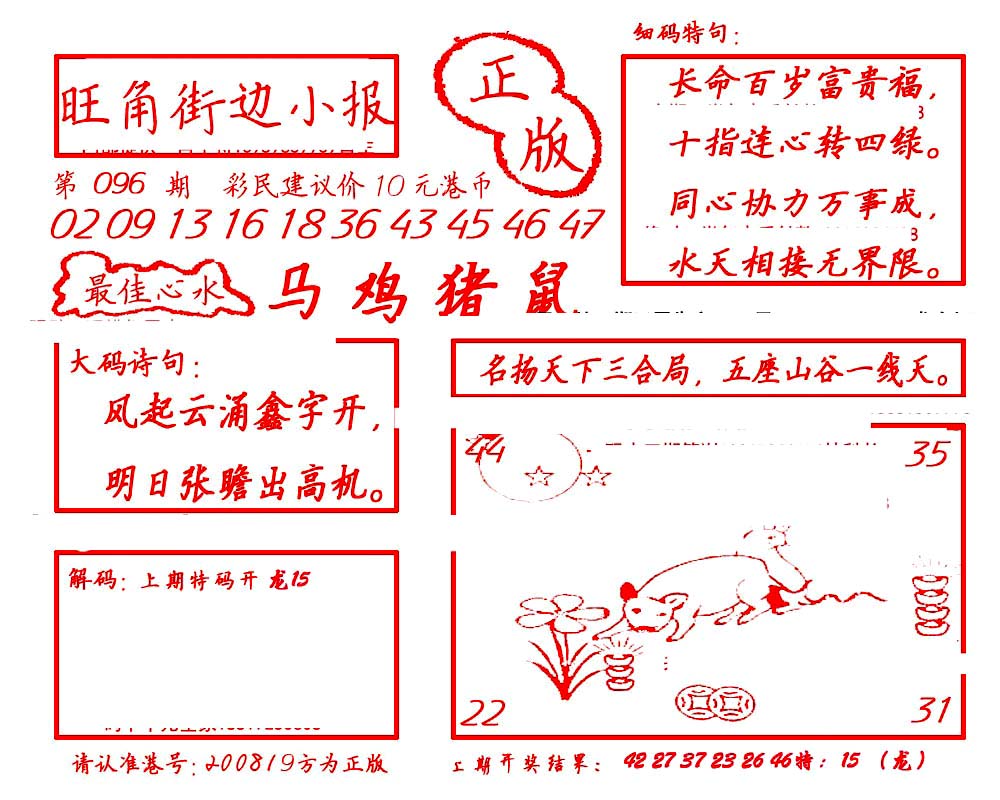 细码特句：
旺角街边小报
正版
长命百岁富贵福，
十指连心转四绿。
同心协力万事成，
水天相接无界限。
第 096 期 彩民建议价 10 元港币
02 09 13 16 18 36 43 45 46 47
最佳心水
马 鸡 猪 鼠
大码诗句：
风起云涌鑫字开，
明日张瞻出高机。
名扬天下三合局，五座山谷一线天。
44
35
22
31
解码：上期特码开 龙15
请认准港号：200819方为正版
上期开奖结果：42 27 37 23 26 46特：15（龙）